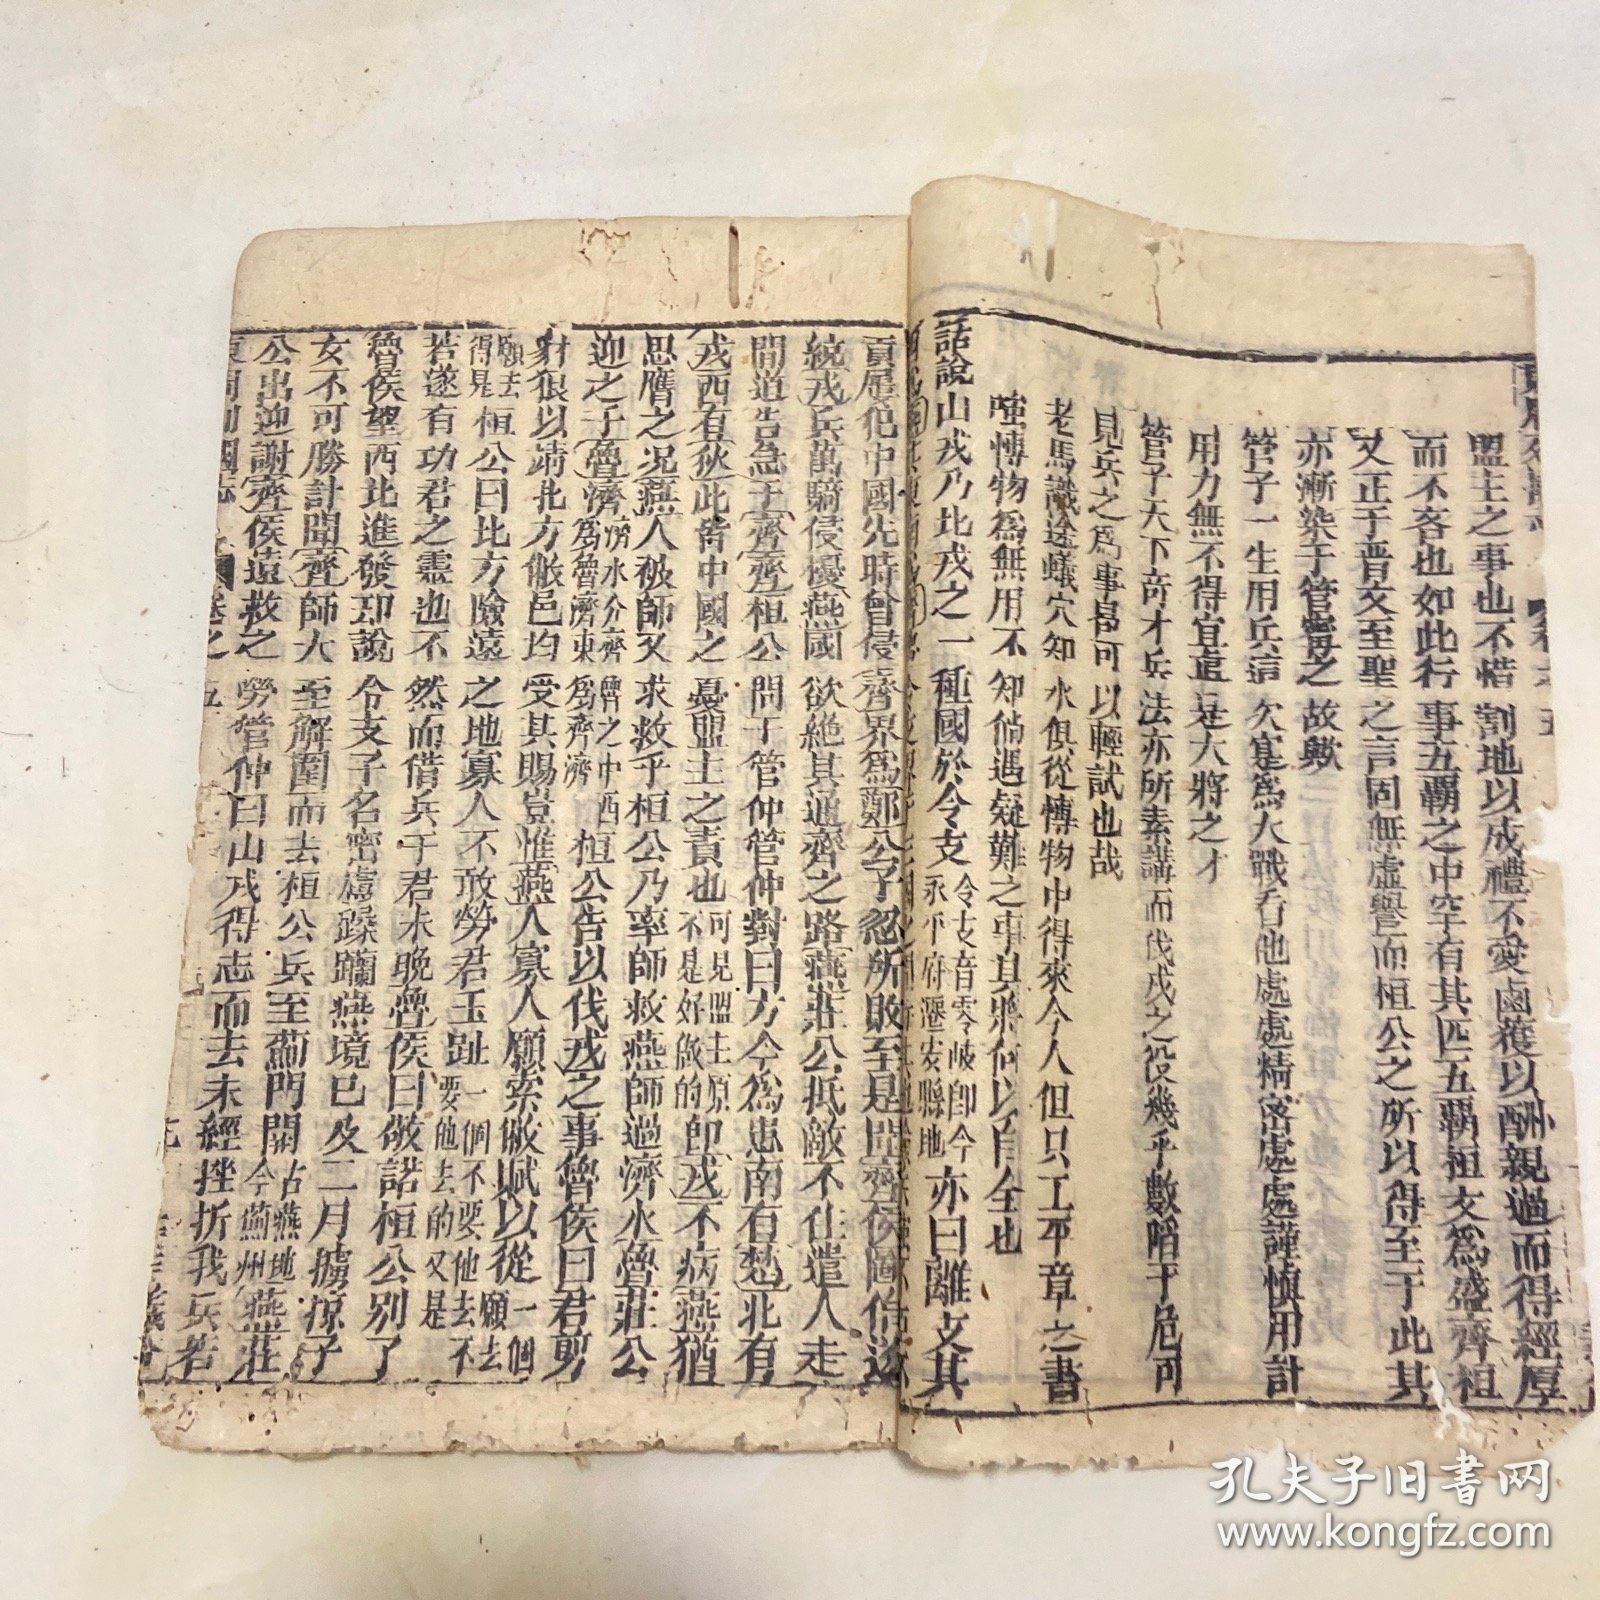 盟主之事也不惜割地以成禮不愛鹵獲以酬親過而得經厚
而不吝也如此行事五覇之中罕有其匹五覇桓文爲盛齊桓
又正于晋文至聖之言固無虛譽而桓公之所以得至于此其
亦漸染于管甯之故歟
管子一生用兵這欠寔爲大戰看他處處精密處處謹慎用計
用力無不得宜眞是大將之才
管子天下竒才兵法亦所素講而伐戎之役幾乎數陷于危可
見兵之爲事畧可以輕試也哉
老馬識途蟻穴知水俱從愽物中得來今人但只工平章之書
嗤愽物爲無用不知倘遇疑難之事其將何以自全也
話說山戎乃北戎之一種國於令支令支音零岐卽今永平府遷安縣地亦曰離支其
貢屢犯中國先時曾侵齊界爲鄭公子忽所敗至是聞齊侯圖伯遂
統戎兵萬騎侵擾燕國欲絶其通齊之路燕莊公抵敵不住遣人走
間道告急于齊齊桓公問于管仲管仲對曰方今爲患南有楚北有
戎西有狄此皆中國之憂盟主之責也可見盟主原不是好做的卽戎不病燕猶
思膺之况燕人被師又求救乎桓公乃率師救燕師過濟水魯莊公
迎之于魯濟濟水分齊魯之中西爲魯濟東爲齊濟桓公告以伐戎之事魯侯曰君剪
豺狼以靖北方敝邑均受其賜豈惟燕人寡人願索敝賦以從一個願去
得是桓公曰北方險遠之地寡人不敢勞君玉趾一個不要他去不要他去的又是
若遂有功君之靈也不然而借兵于君未晚魯侯曰敬諾桓公別了
魯侯望西北進發却說令支子名密盧蹂躪燕境已及二月擄掠子
女不可勝計聞齊師大至解圍而去桓公兵至薊門關古燕地今薊州燕莊
公出迎謝齊侯遠救之勞管仲曰山戎得志而去未經挫折我兵若
東周列國志 卷之五
孔夫子旧书网
www.kongfz.com